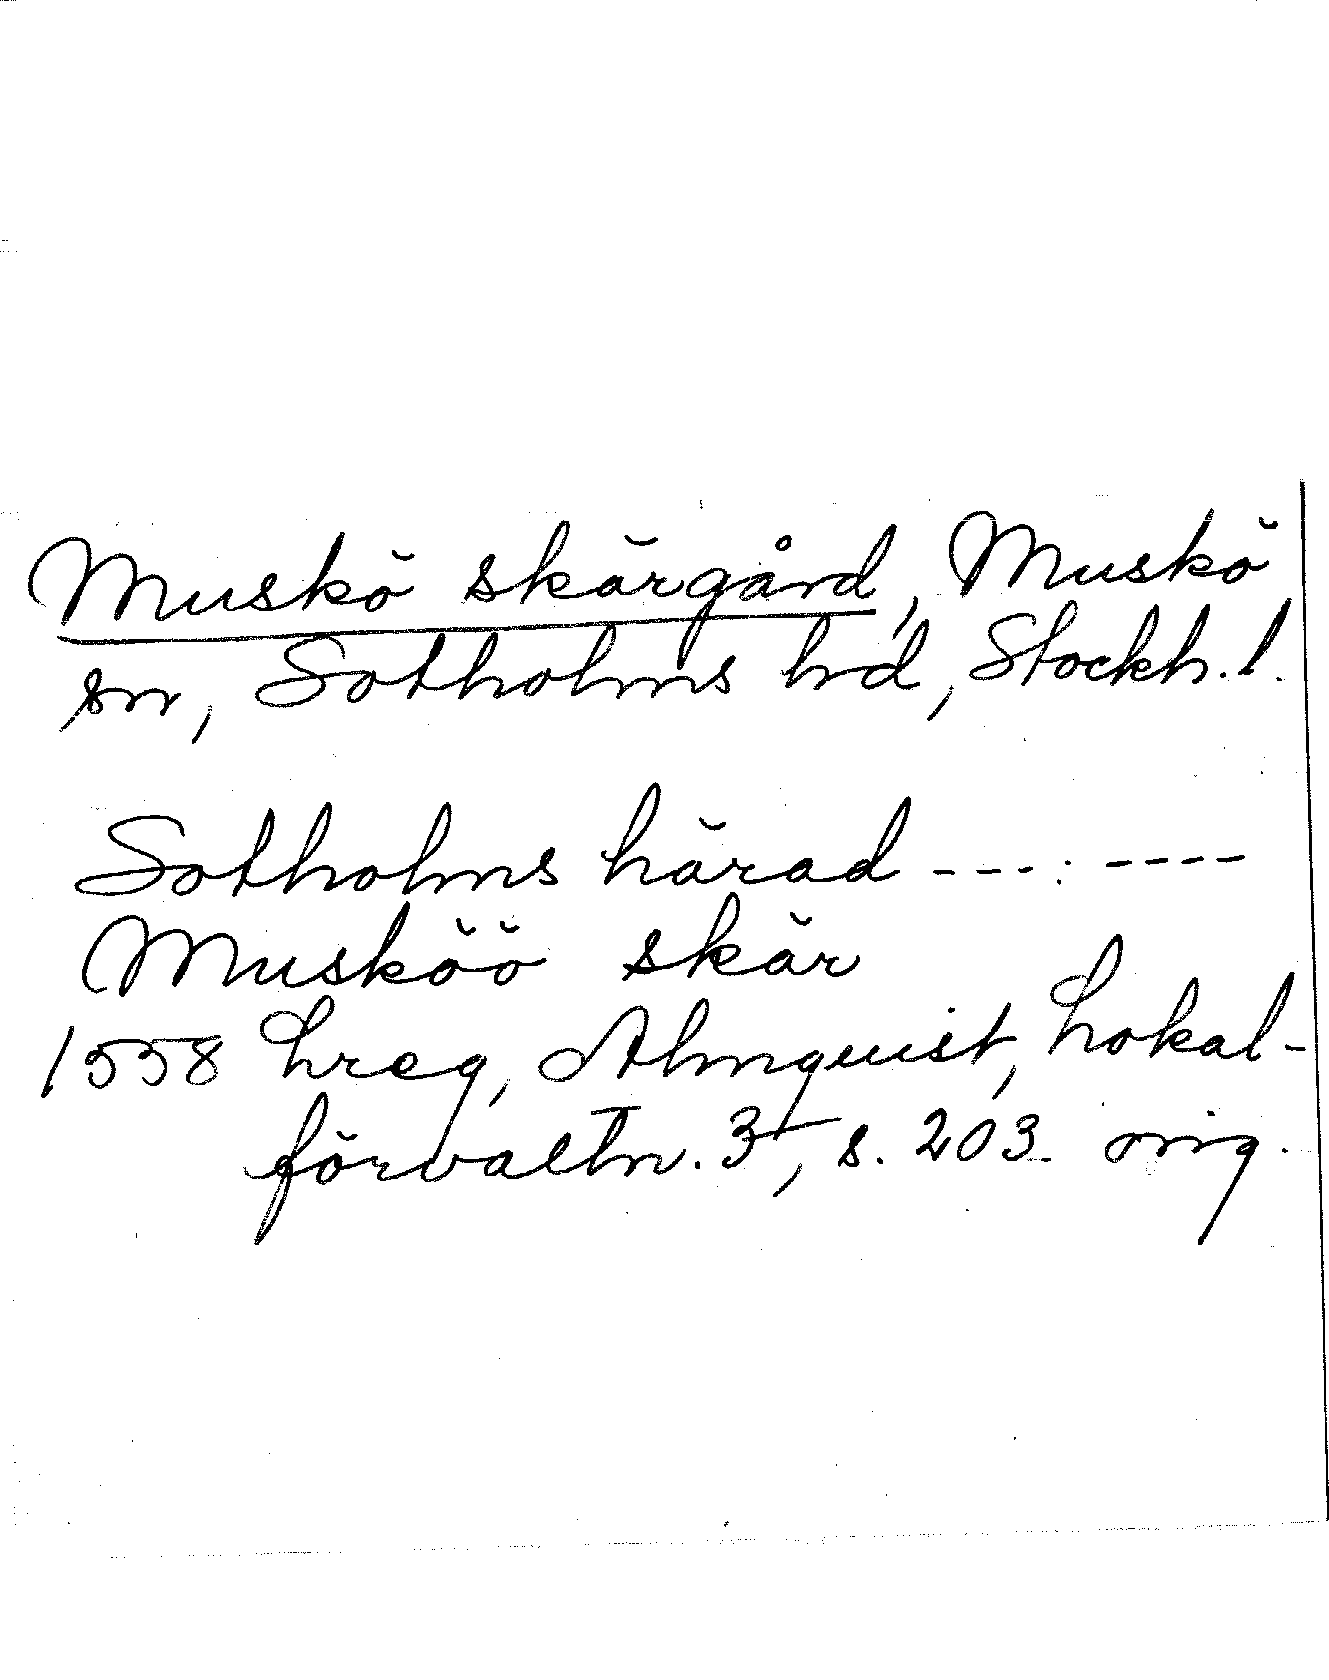 Muskö skärgård, Muskö
sn, Sotholms hd, Stockh. l.
Sotholms härad ---: ----
Musköö skär
1558 Lreg, Almquist, Lokal-
förvaltn. 3, s. 203 orig.